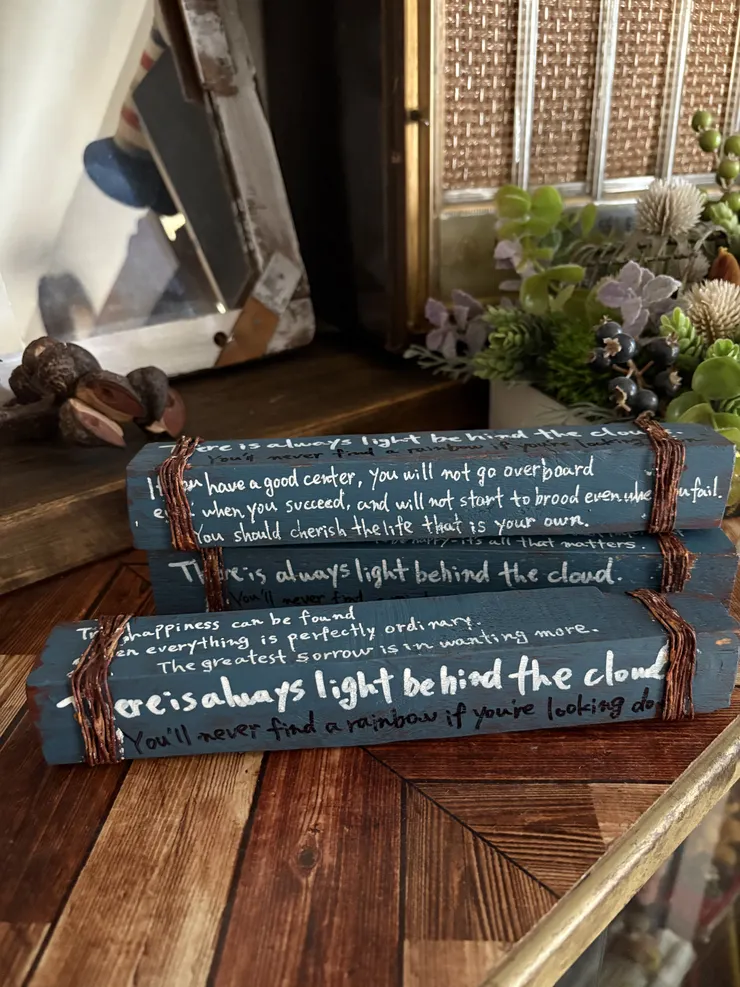 There is always light behind the cloud.
You'd never find a rainbow if you're looking
If you have a good center, you will not go overboard
even when you succeed, and will not start to brood even when you fail.
You should cherish the life that is your own.
all that matters.
There is always light behind the cloud.
You'll never find
happiness can be found
en everything is perfectly ordinary.
The greatest sorrow is in wanting more.
There is always light behind the cloud
You'll never find a rainbow if you're looking do